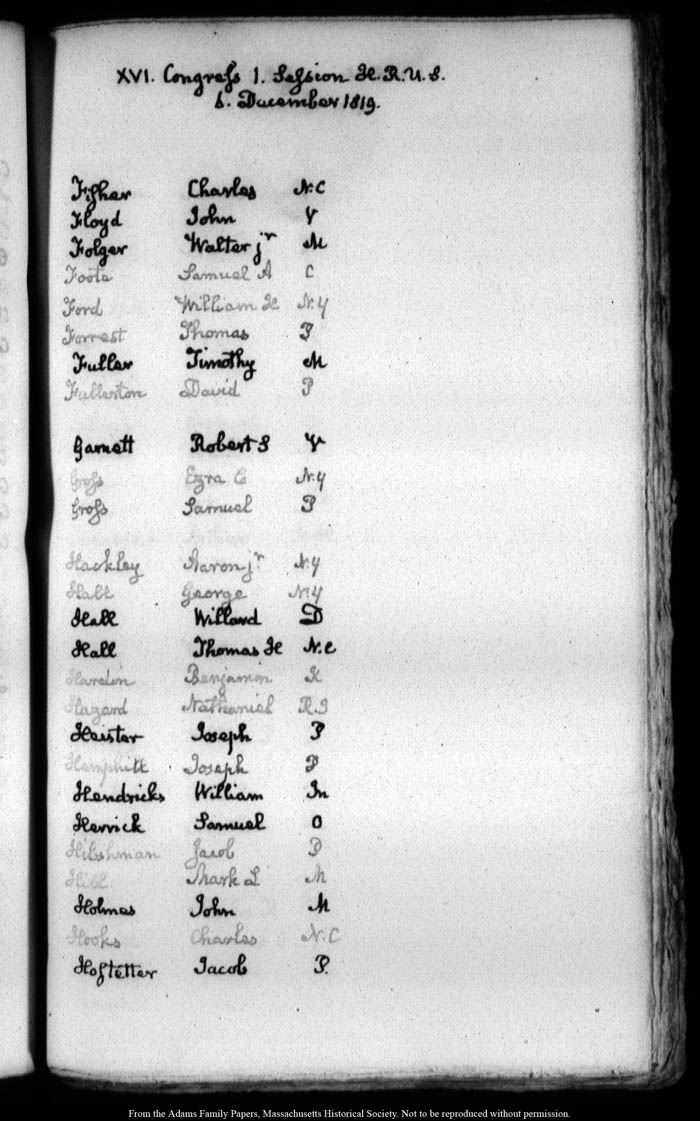 XVI. Congreſs 1. Seſsion H.R.U.S.
6. December 1819.
Fiſher Charles N.C
Floyd John V
Folger Walter jr M
Foote Samuel A C
Ford William H N.Y
Forrest Thomas P
Fuller Timothy M
Fullerton David P
Garnett Robert S V
Groſs Ezra C N.Y
Groſs Samuel P
Hackley Aaron jr N.Y
Hall George N.Y
Hall Willard D
Hall Thomas H N.C
Hardin Benjamin K
Hazard Nathaniel R.I
Heister Joseph P
Hemphill Joseph P
Hendricks William In
Herrick Samuel O
Hibshman Jacob P
Hill Mark L M
Holmes John M
Hooks Charles N.C
Hoſtetter Jacob P.
From the Adams Family Papers, Massachusetts Historical Society. Not to be reproduced without permission.